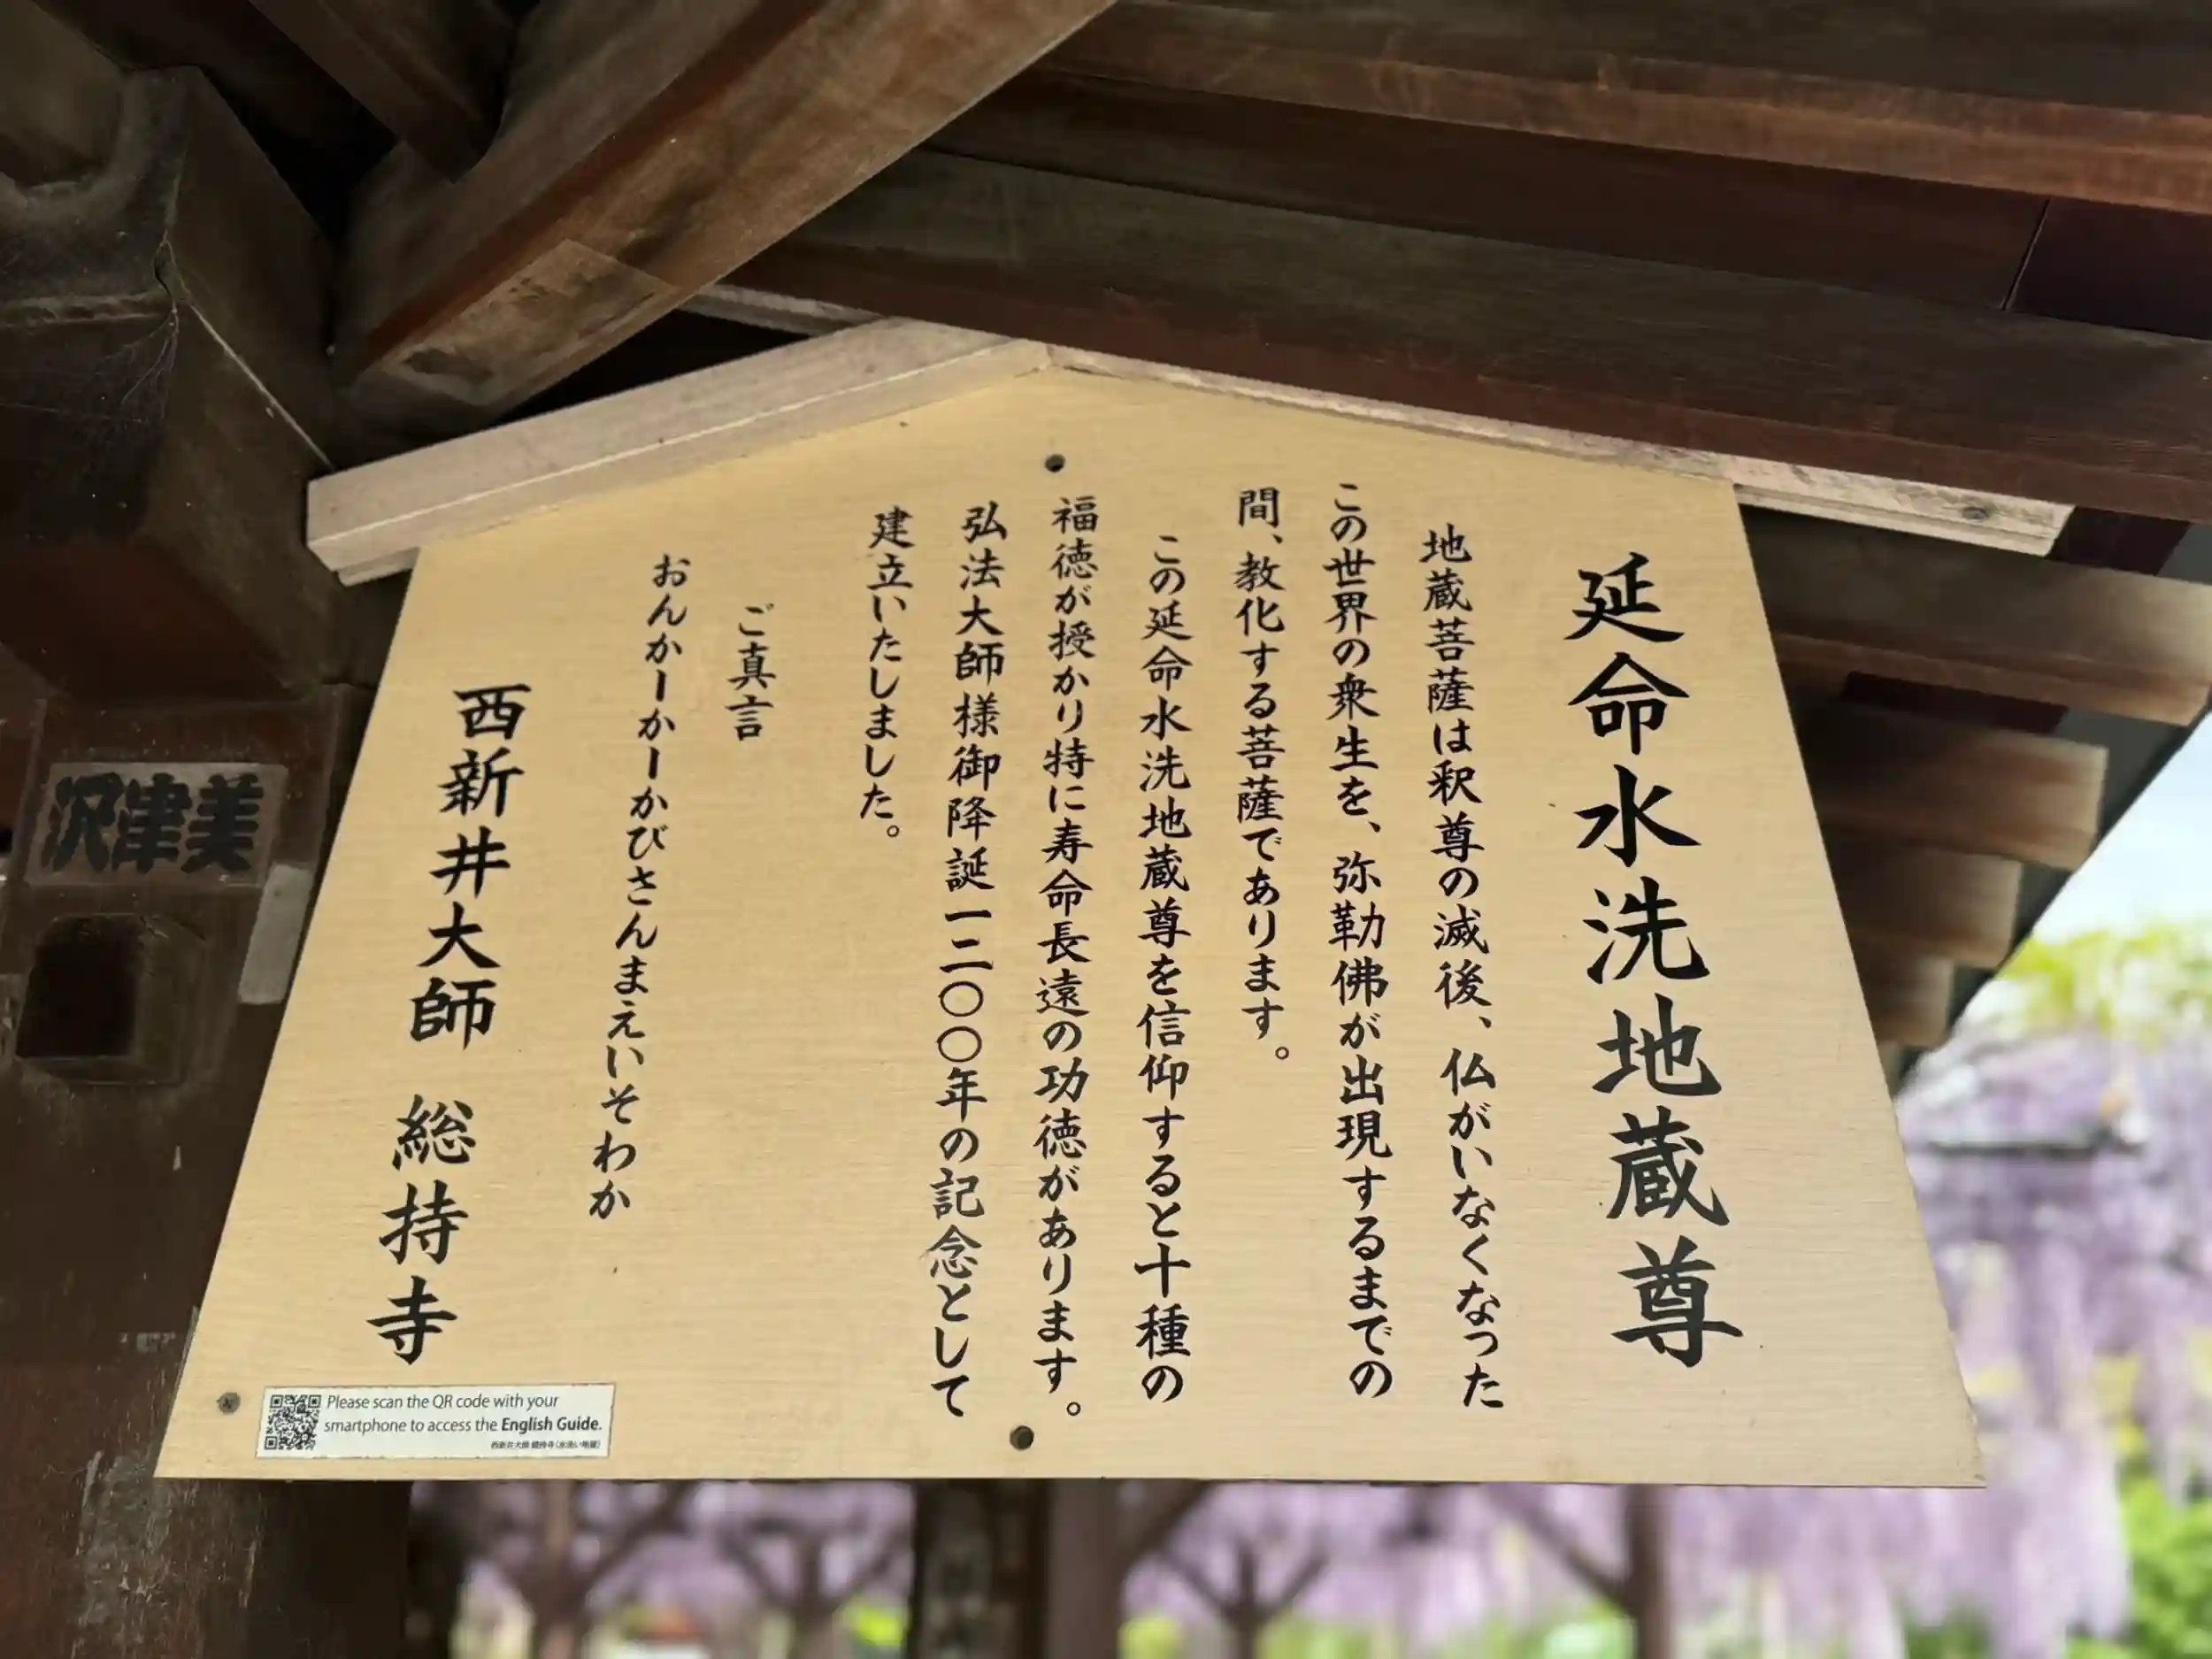 延命水洗地蔵尊
地蔵菩薩は釈尊の滅後、仏がいなくなった
この世界の衆生を、弥勒佛が出現するまでの
間、教化する菩薩であります。
この延命水洗地蔵尊を信仰すると十種の
福徳が授かり特に寿命長遠の功徳があります。
弘法大師様御降誕一二〇〇年の記念として
建立いたしました。
ご真言
おんかーかーかびさんまえいそわか
西新井大師 総持寺
Please scan the QR code with your
smartphone to access the English Guide.
西新井大師 總持寺(水洗い地蔵)
美津沢